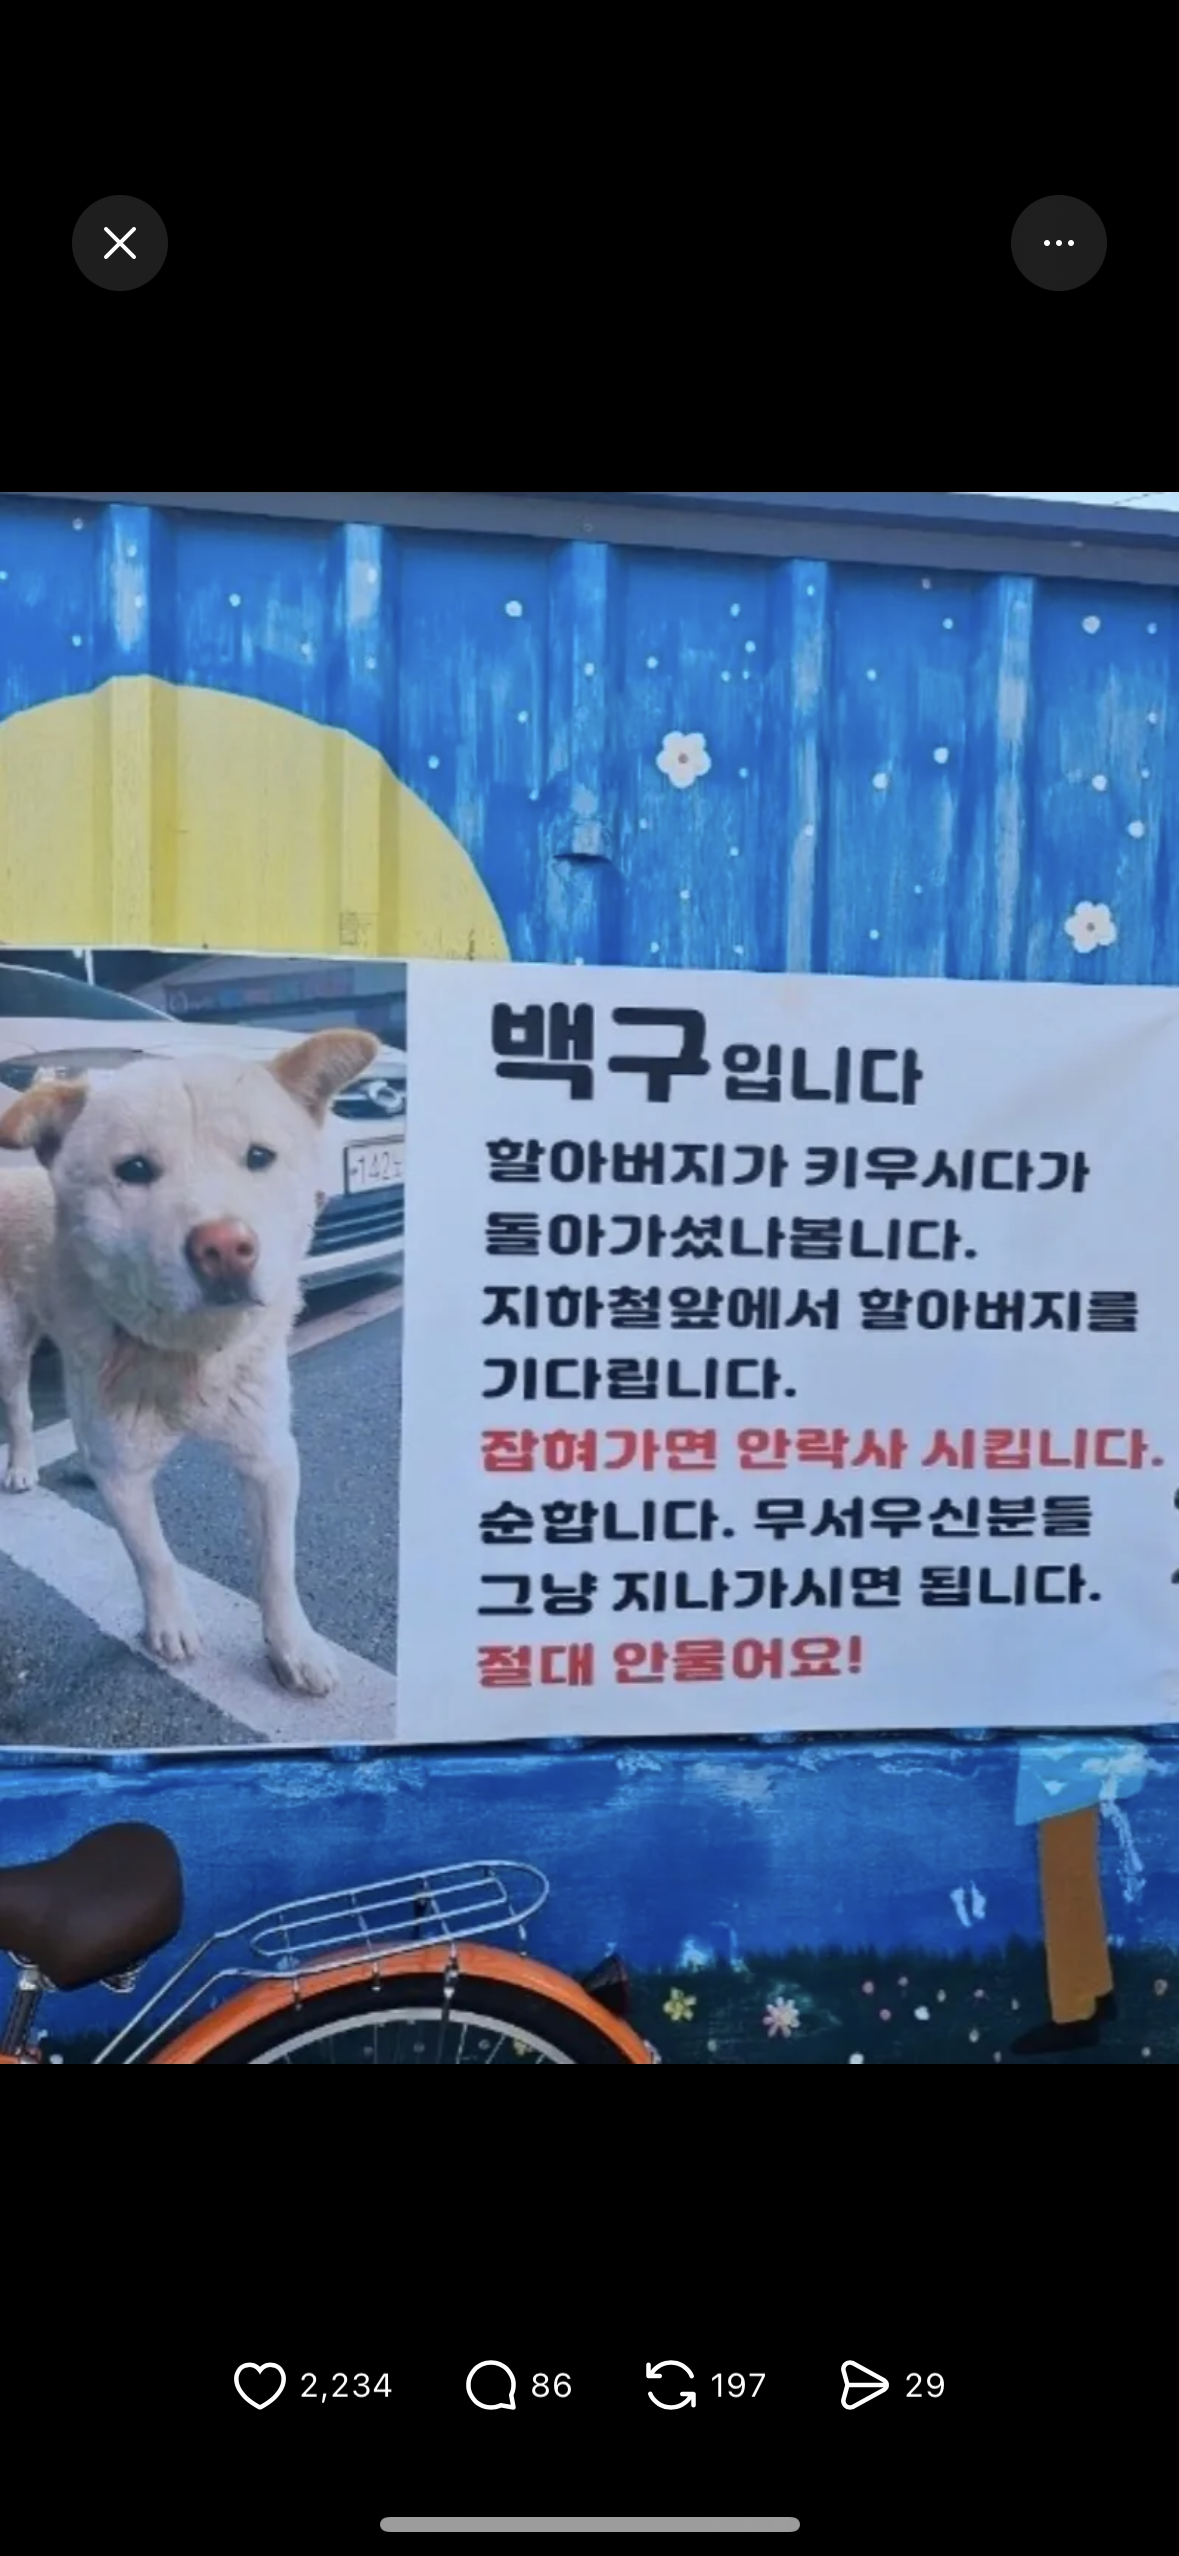 백구입니다
할아버지가 키우시다가
돌아가셨나봅니다.
지하철앞에서 할아버지를
기다립니다.
잡혀가면 안락사 시킵니다.
순합니다. 무서우신분들
그냥 지나가시면 됩니다.
절대 안물어요!
2,234 86 197 29